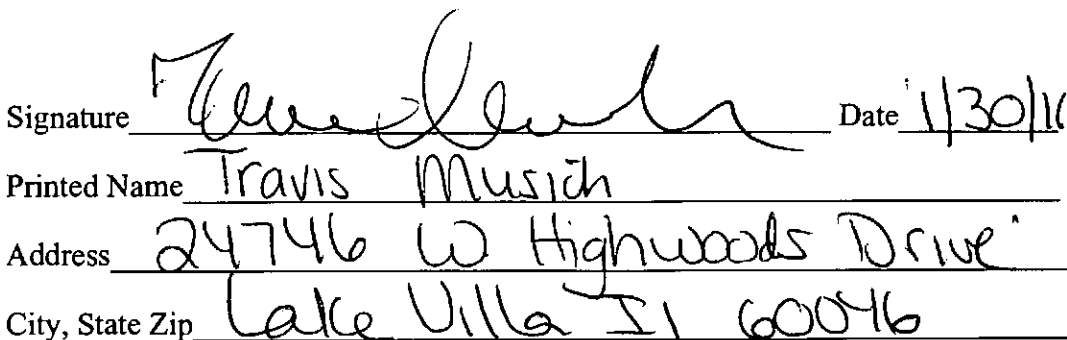 Signature Date 1/30/16
Printed Name Travis Musich
Address 24746 W Highwoods Drive
City, State Zip Lake Villa Il 60046